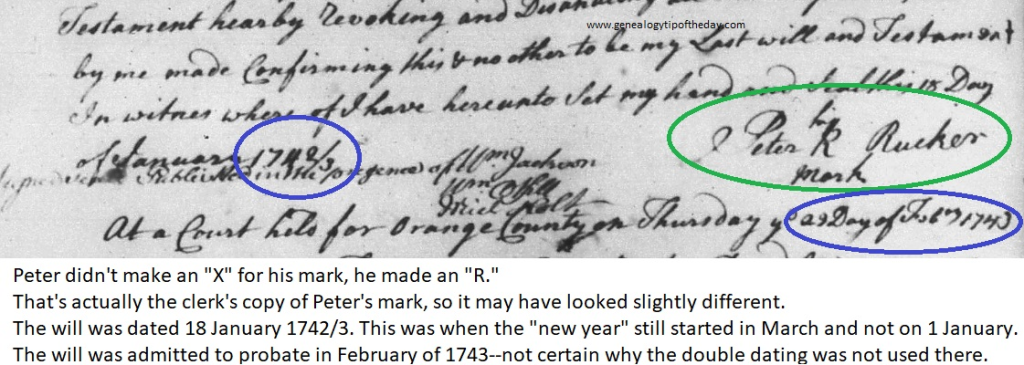 www.genealogytipoftheday.com
Testament hearby Revoking and
by me made Confirming this & no other to be my Last will and Testament
In witnes where of I have hereunto Set my hand and Seal this 18 Day
of January 1742/3
his
Peter R Rucker
mark
Published in the of Wm Jackson
Wm
At a Court held for Orange County on Thursday ye Day of Febry 1743
Peter didn't make an "X" for his mark, he made an "R."
That's actually the clerk's copy of Peter's mark, so it may have looked slightly different.
The will was dated 18 January 1742/3. This was when the "new year" still started in March and not on 1 January.
The will was admitted to probate in February of 1743--not certain why the double dating was not used there.